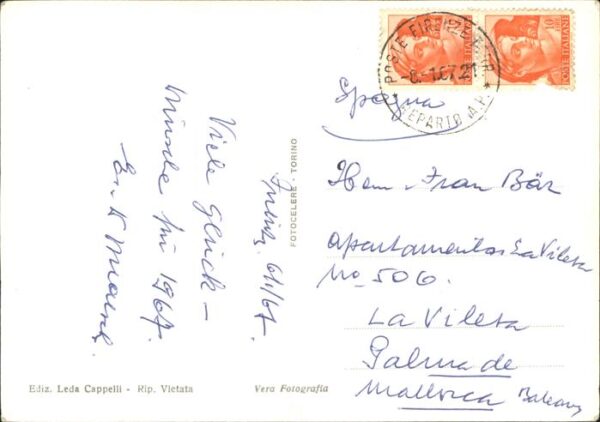 POSTE FIRENZE
-8.-1.67.21
REPARTO A.P.
POSTE ITALIANE
POSTE ITALIANE
Spagna
Viele Glück-
wünsche für 1967.
FOTOCELERE - TORINO
Herrn u Frau Bär
apartamentos La Vileta
No. 506.
La Vileta
Palma de
Mallorca Baleares
Ediz. Leda Cappelli - Rip. Vietata
Vera Fotografia